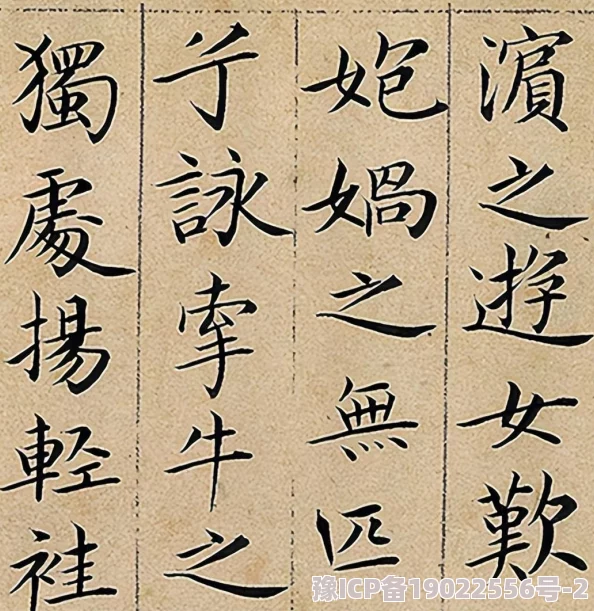 濵之遊女歎
㚿媧之無匹
兮詠牽牛之
獨處揚輕袿
豫ICP备19022556号-2